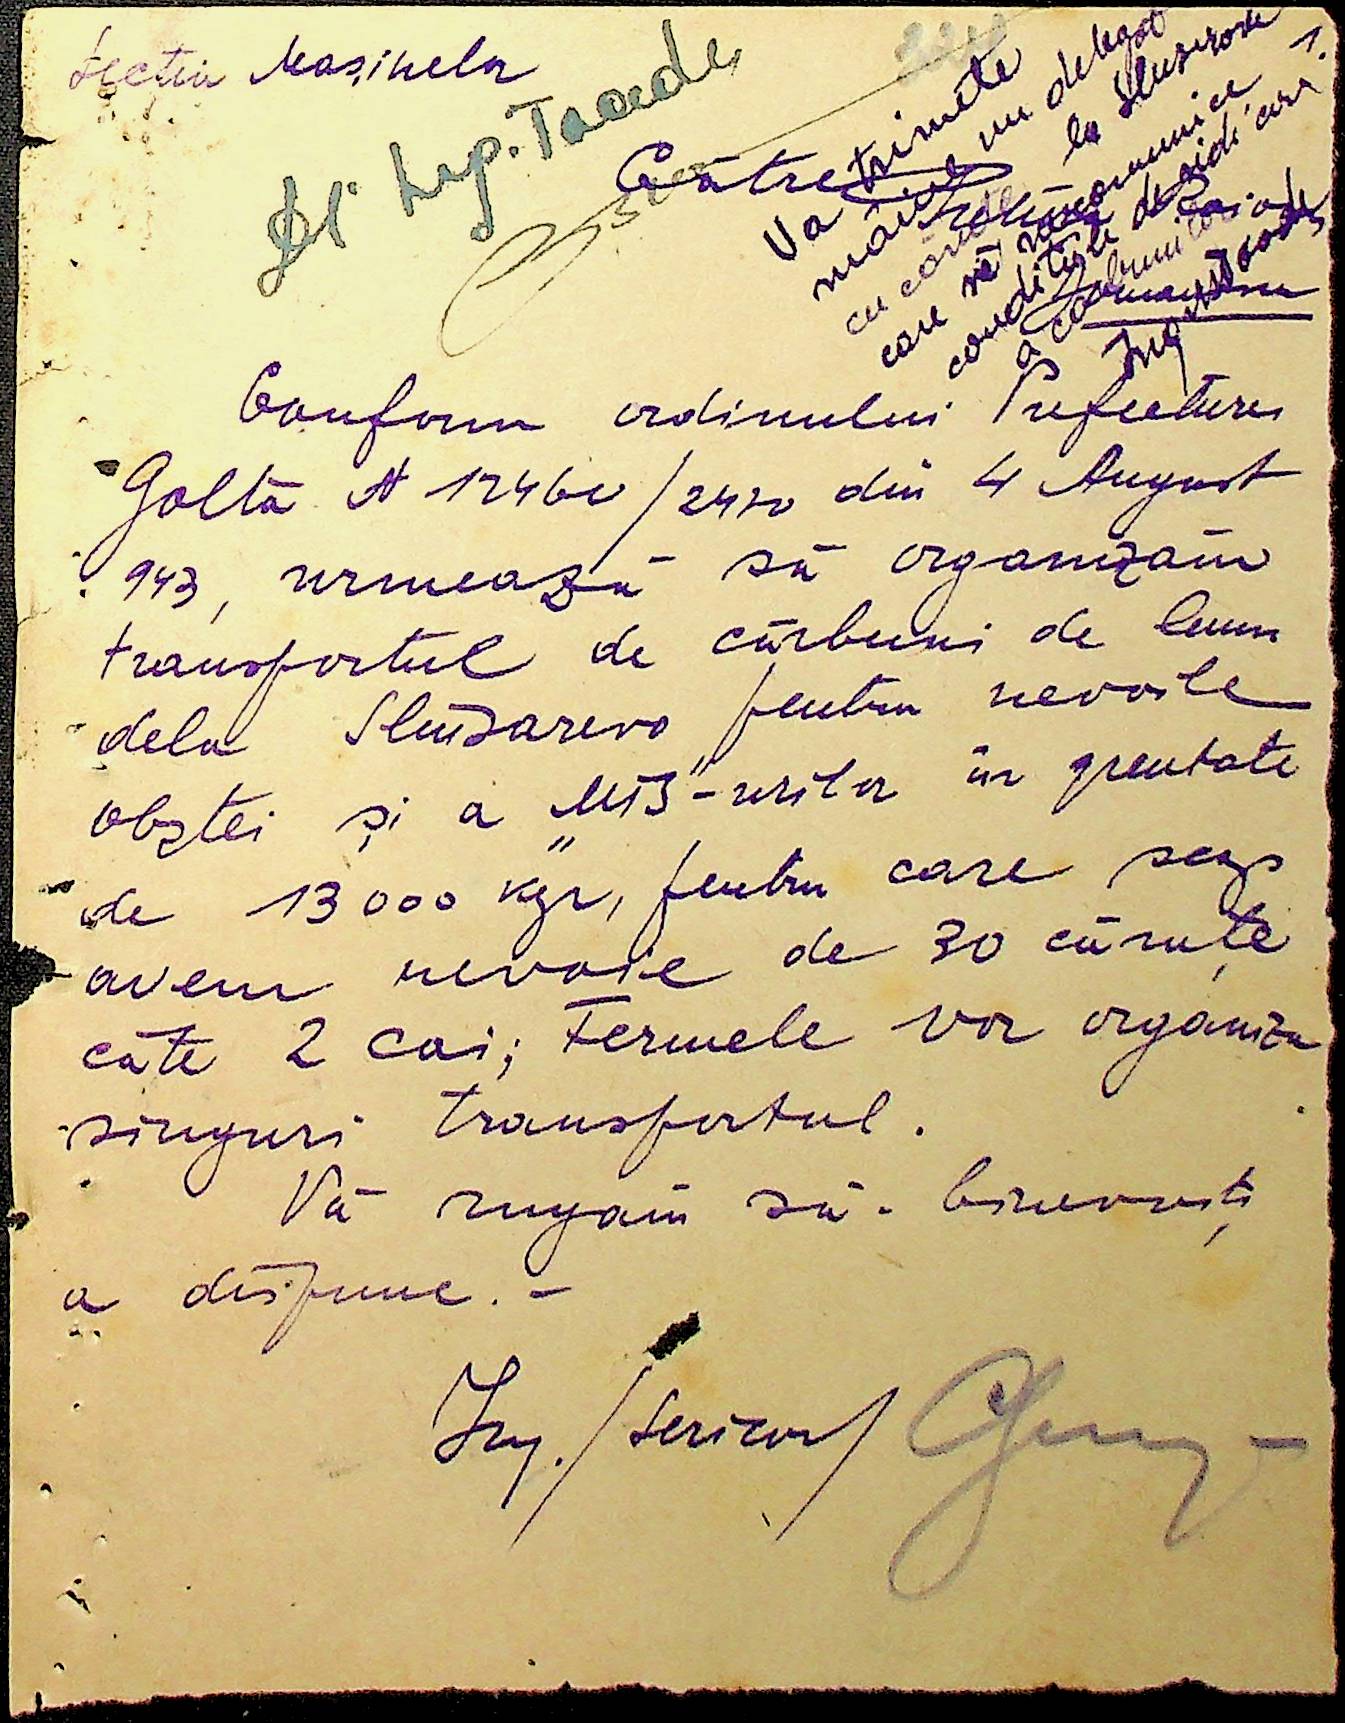 Secția Mașinelor
Dl. Ing. Taade
Către
Va trimite
mâine un delegat
cu căruțe la Slusarove
care să ne comunice
condițiile de ridicare
a cărbunilor
Ing
Conform ordinului Prefecturei
Golta N 12460/2470 din 4 August
943, urmează să organizăm
transportul de cărbuni de lemn
dela Sluzarevo pentru nevoile
obștei și a „MTS"-urilor în greutate
de 13000 kgr, pentru care scop
avem nevoie de 30 căruțe
câte 2 cai; Fermele vor organiza
singuri transportul.
Vă rugăm să binevoiți
a dispune.-
Ing. /